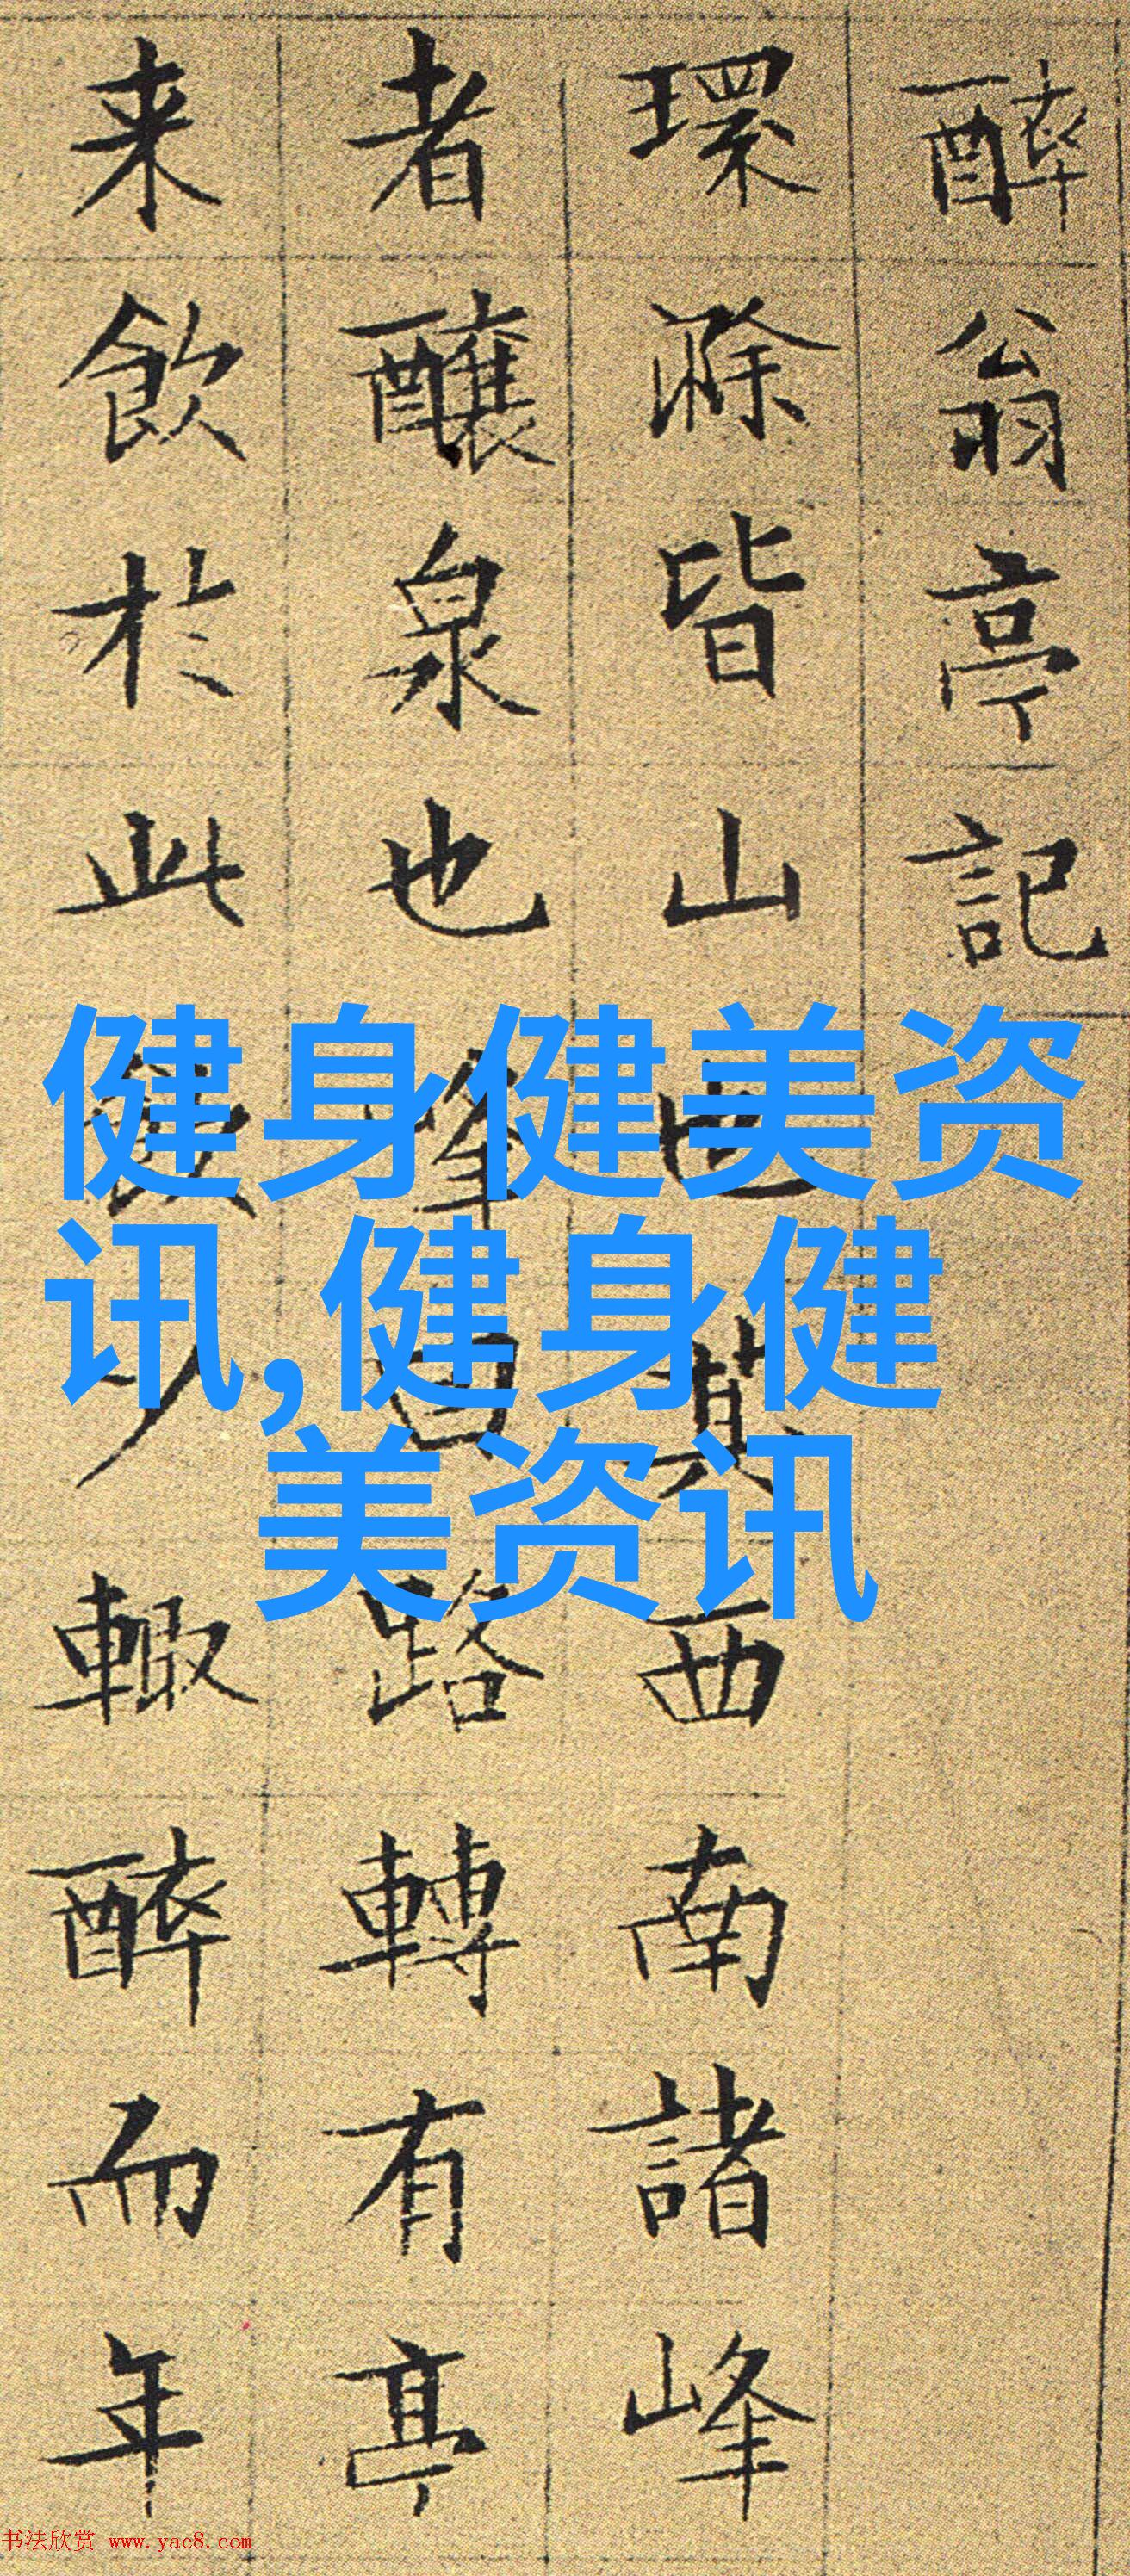 醉翁亭記
環滁皆山也其西南諸峰
者釀泉也峯回路轉有亭
来飲於此飲少輒醉而年
健身健美资
讯,健身健
美资讯
书法欣赏 www.yac8.com